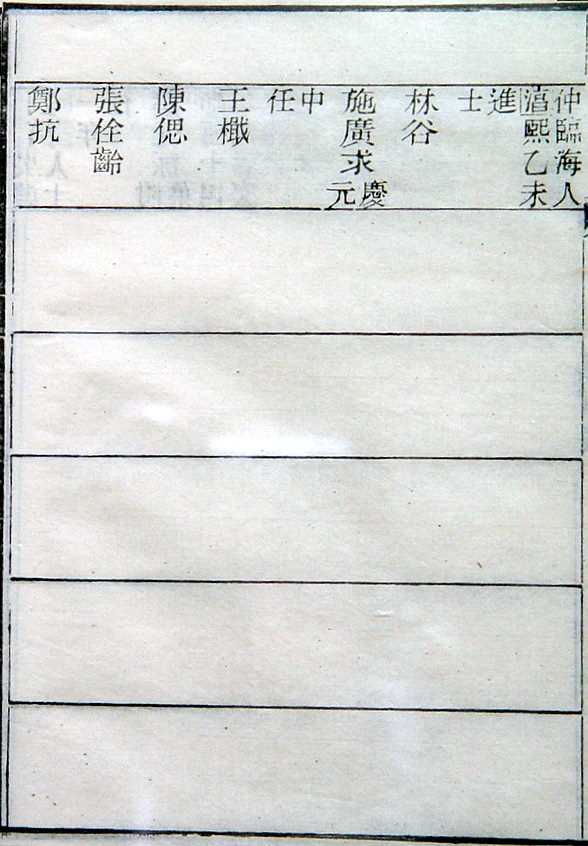 仲臨海人
湻熙乙未
進
士
林谷
施廣求
慶
元
中
任
王櫼
陳偲
張佺齡
鄭抗